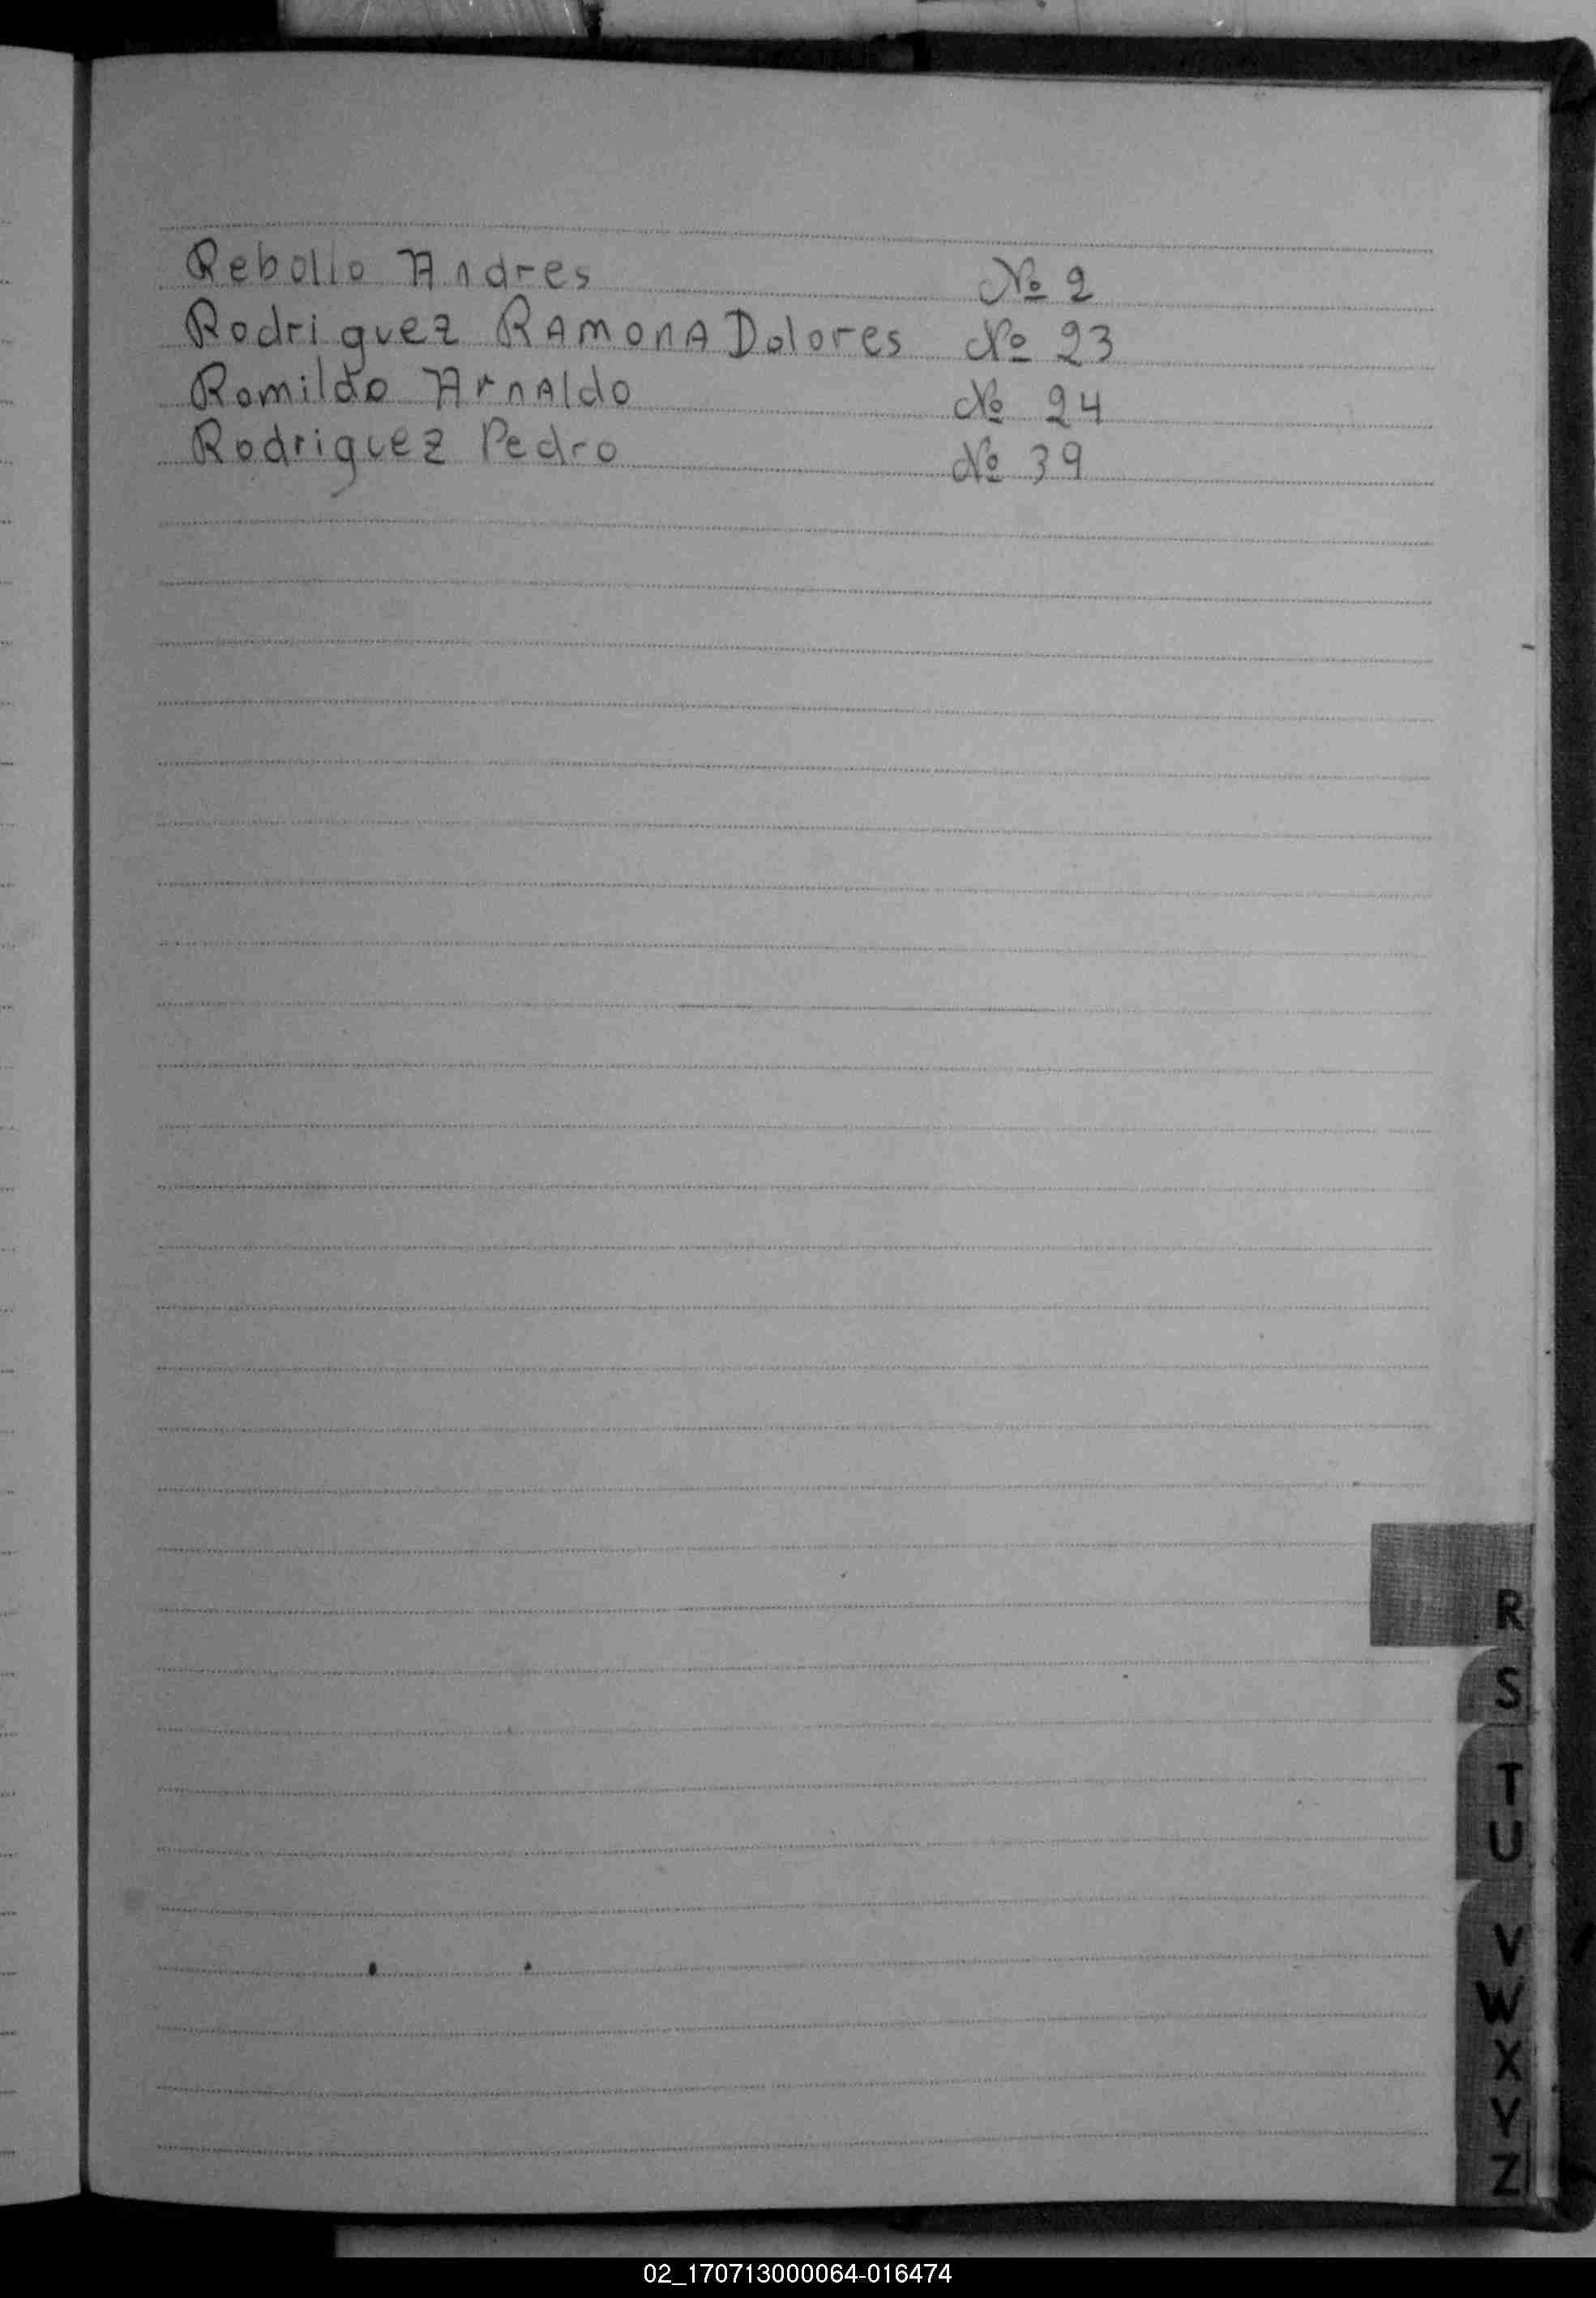 Rebollo Andres Nº 2
Rodriguez RAmonA Dolores Nº 23
Romildo ArnAldo Nº 24
Rodriguez Pedro Nº 39
R
S
T
U
V
W
X
Y
Z
02_170713000064-016474